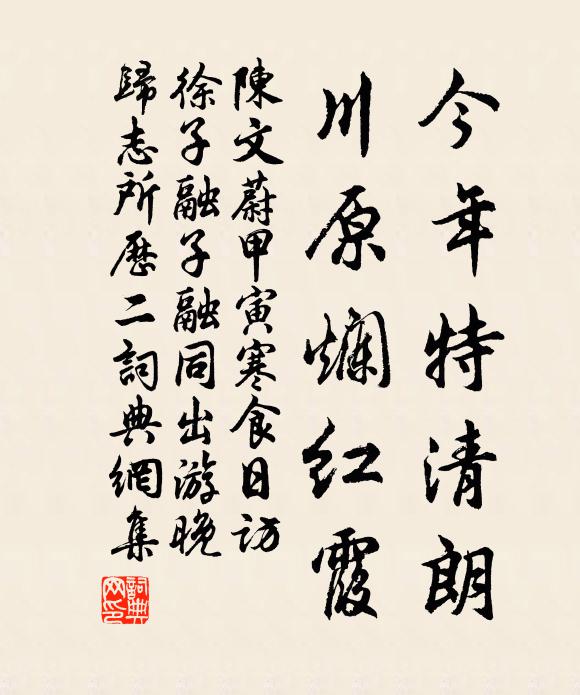 今年特清朗
川原爛紅霞
陳文蔚甲寅寒食日訪
徐子融子融同出游晚
歸志所歷二詞典網集
詞典
网印